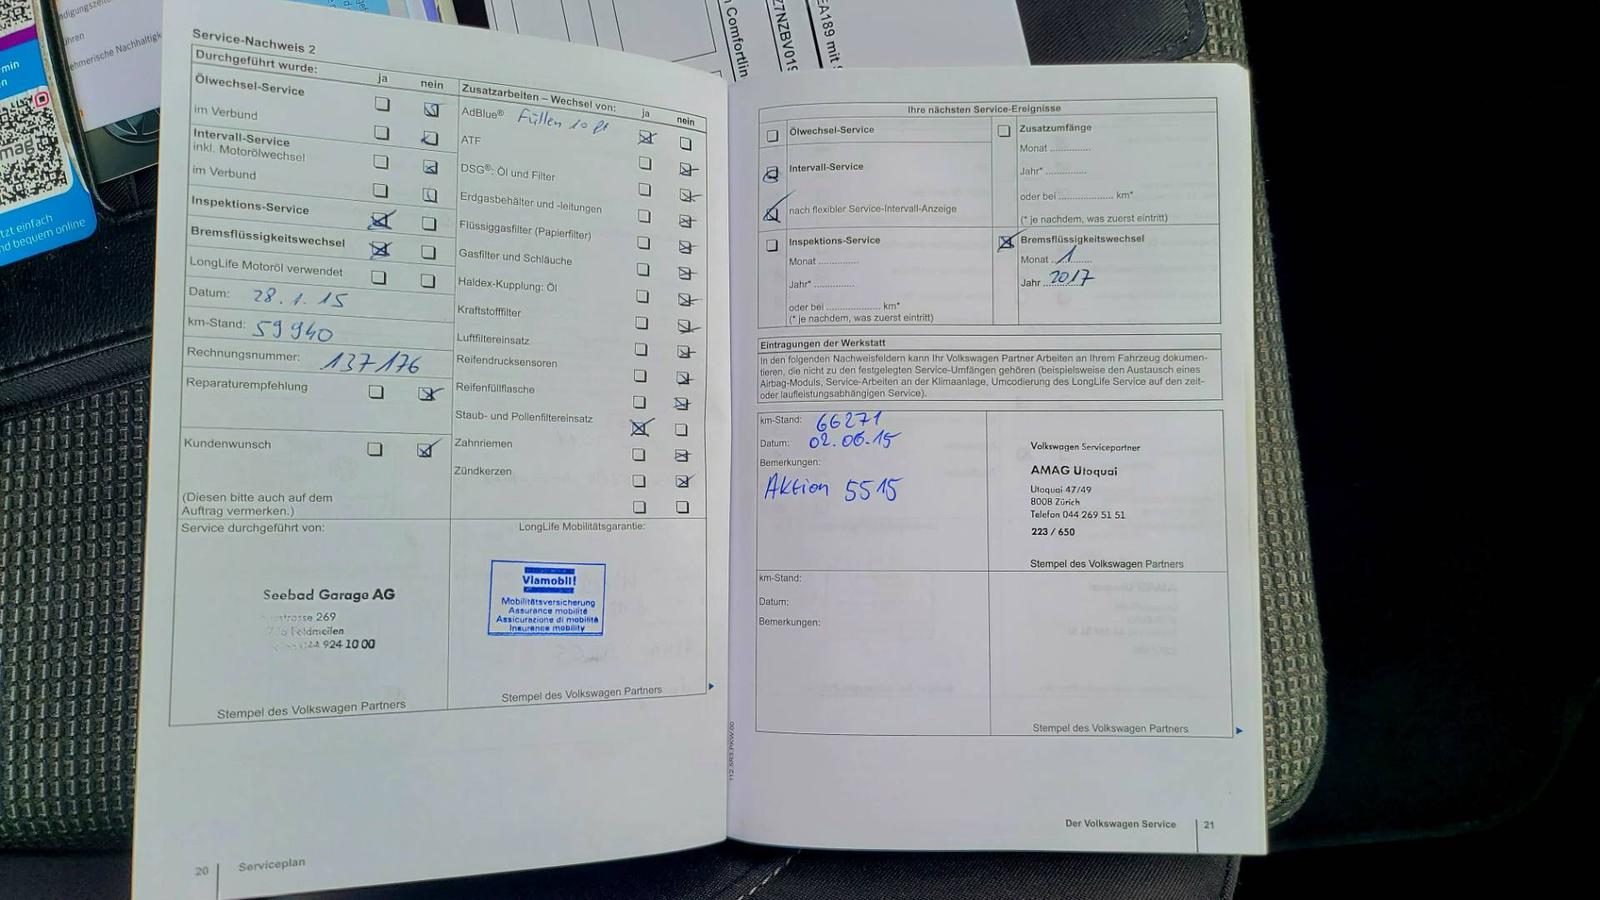 digungszeiten
ühren
ehmerische Nachhaltigk
min
tzt einfach
nd bequem online
n Comfortlin
Z7NZBV019
EA189 mit
Service-Nachweis 2
Durchgeführt wurde:
ja
nein
Ölwechsel-Service
im Verbund
Intervall-Service
inkl. Motorölwechsel
im Verbund
Inspektions-Service
Bremsflüssigkeitswechsel
LongLife Motoröl verwendet
Datum: 28.1.15
km-Stand: 59940
Rechnungsnummer: 137176
Reparaturempfehlung
Kundenwunsch
(Diesen bitte auch auf dem
Auftrag vermerken.)
Zusatzarbeiten – Wechsel von:
ja
nein
AdBlue® Füllen 10 lt
ATF
DSG®: Öl und Filter
Erdgasbehälter und -leitungen
Flüssiggasfilter (Papierfilter)
Gasfilter und Schläuche
Haldex-Kupplung: Öl
Kraftstofffilter
Luftfiltereinsatz
Reifendrucksensoren
Reifenfüllflasche
Staub- und Pollenfiltereinsatz
Zahnriemen
Zündkerzen
Service durchgeführt von:
Seebad Garage AG
strasse 269
Feldmeilen
044 924 10 00
Stempel des Volkswagen Partners
LongLife Mobilitätsgarantie:
Viamobil!
Mobilitätsversicherung
Assurance mobilité
Assicurazione di mobilità
Insurance mobility
Stempel des Volkswagen Partners
20
Serviceplan
Ihre nächsten Service-Ereignisse
Ölwechsel-Service
Intervall-Service
nach flexibler Service-Intervall-Anzeige
Inspektions-Service
Monat ..............
Jahr* ..............
oder bei ..................... km*
(* je nachdem, was zuerst eintritt)
Zusatzumfänge
Monat ..............
Jahr* ..............
oder bei ..................... km*
(* je nachdem, was zuerst eintritt)
Bremsflüssigkeitswechsel
Monat 1
Jahr 2017
Eintragungen der Werkstatt
In den folgenden Nachweisfeldern kann Ihr Volkswagen Partner Arbeiten an Ihrem Fahrzeug dokumen-
tieren, die nicht zu den festgelegten Service-Umfängen gehören (beispielsweise den Austausch eines
Airbag-Moduls, Service-Arbeiten an der Klimaanlage, Umcodierung des LongLife Service auf den zeit-
oder laufleistungsabhängigen Service).
km-Stand: 66271
Datum: 02.06.15
Bemerkungen:
Aktion 5515
Volkswagen Servicepartner
AMAG Utoquai
Utoquai 47/49
8008 Zürich
Telefon 044 269 51 51
223 / 650
Stempel des Volkswagen Partners
km-Stand:
Datum:
Bemerkungen:
Stempel des Volkswagen Partners
112.5R3.PKW.00
Der Volkswagen Service
21